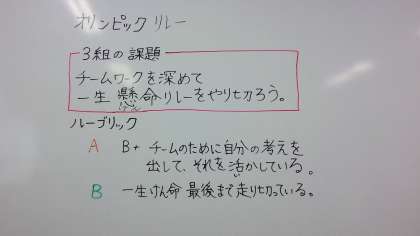 オリンピック リレー
3組の課題
チームワークを深めて
一生懸命リレーをやり切ろう。
ルーブリック
A B+ チームのために自分の考えを
出して、それを活かしている。
B 一生けん命 最後まで走り切っている。